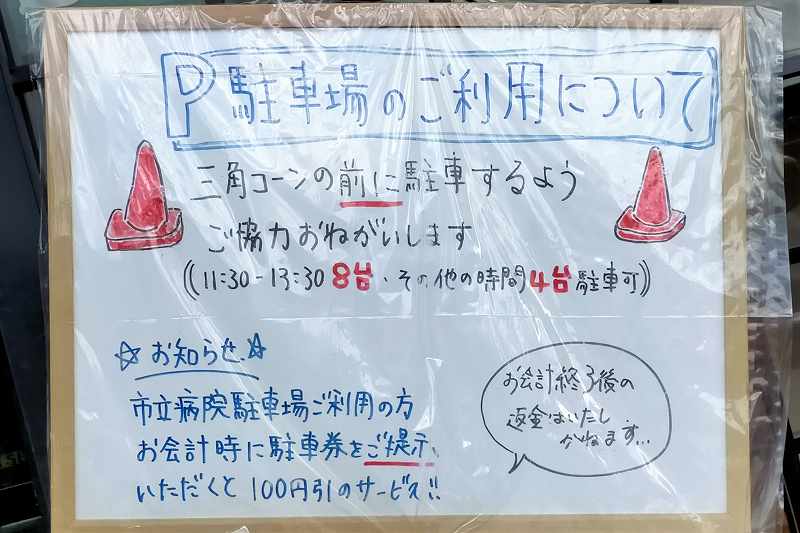 P 駐車場のご利用について
三角コーンの前に駐車するよう
ご協力おねがいします
((11:30-13:30 8台、その他の時間4台駐車可))
☆お知らせ☆
市立病院駐車場ご利用の方
お会計時に駐車券をご提示
いただくと100円引のサービス!!
お会計終了後の
返金はいたし
かねます...